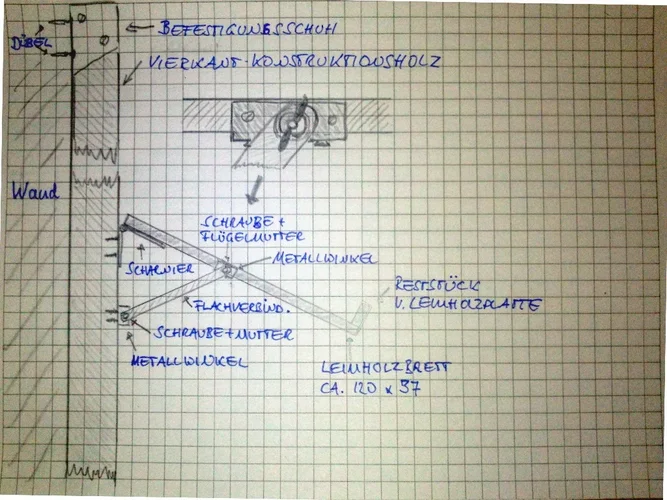 BEFESTIGUNGSSCHUH
DÜBEL
VIERKANT-KONSTRUKTIONSHOLZ
Wand
SCHRAUBE +
FLÜGELMUTTER
METALLWINKEL
SCHARNIER
RESTSTÜCK
V. LEIMHOLZPLATTE
FLACHVERBIND.
SCHRAUBE+MUTTER
METALLWINKEL
LEIMHOLZBRETT
CA. 120 x 37